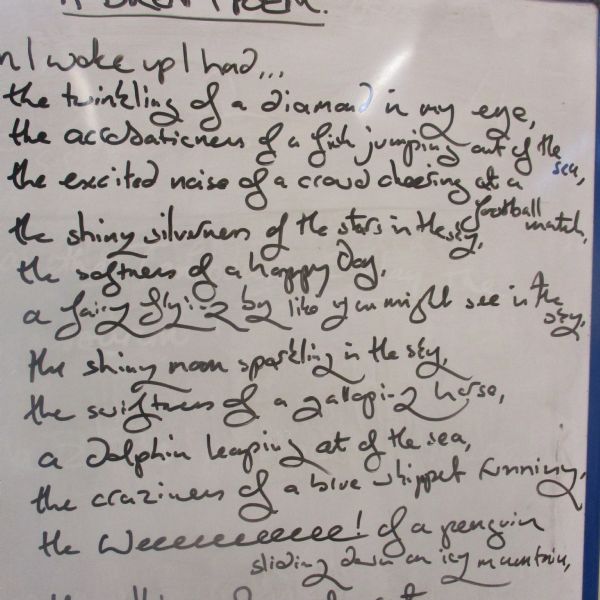 A GROUP POEM.
n I woke up I had...
the twinkling of a diamond in my eye,
the acrobaticness of a fish jumping out of the sea,
the excited noise of a crowd cheering at a football match,
the shiny silverness of the stars in the sky,
the softness of a happy day,
a fairy flying by like you might see in the sky,
the shiny moon sparkling in the sky,
the swiftness of a galloping horse,
a dolphin leaping out of the sea,
the craziness of a blue whippet running,
the Weeeeeeeeee! of a penguin
sliding down an icy mountain,